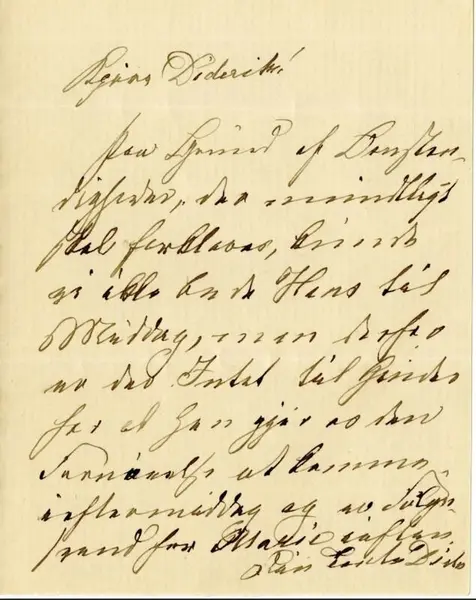 Kjære Diderik!
Paa Grund af Omsten-
digheder, der mundtligt
skal forklares, kunde
vi ikke bede Hans til
Middag, men derfor
er der Intet til Hinder
for at han gjør os den
Fornøielse at komme
ieftermiddag og er Følge-
svend for Marie iaften
Din